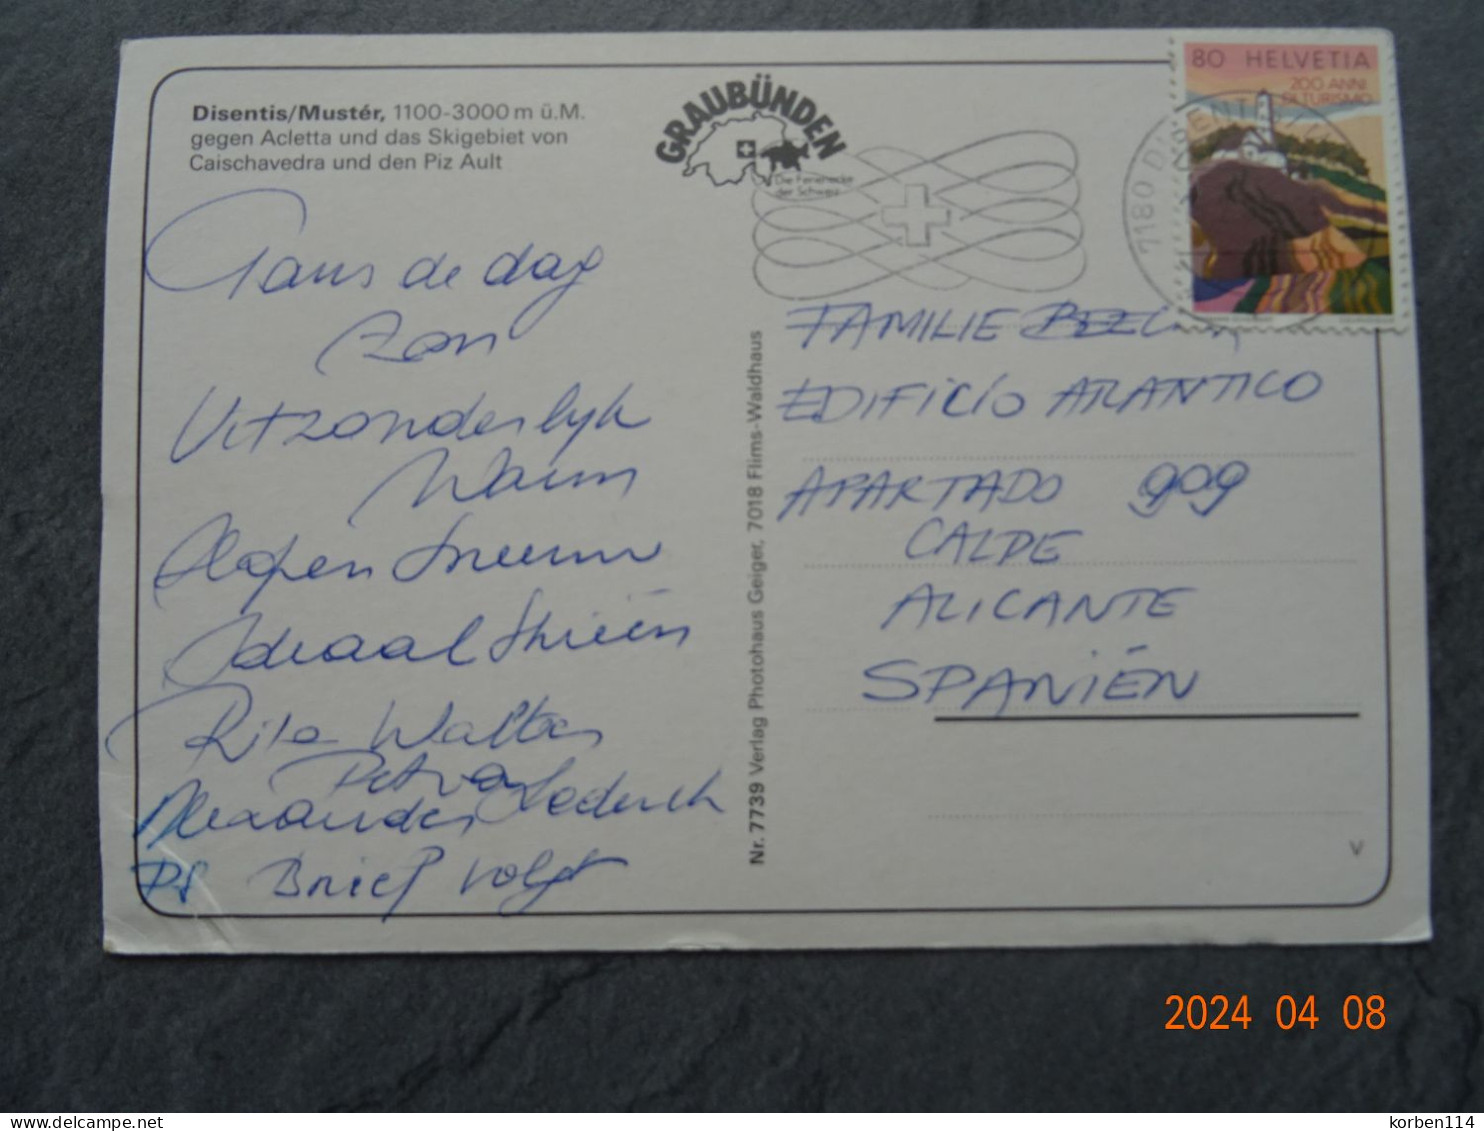 Disentis/Mustér, 1100-3000 m ü.M.
gegen Acletta und das Skigebiet von
Caischavedra und den Piz Ault
GRAUBÜNDEN
Die Ferienecke
der Schweiz
80 HELVETIA
200 ANNI
DI TURISMO
7180 DISENTIS/
Gans de dag
zon
Uitzonderlyk
Warm
Slapen Sneeuw
Ideaal Skieën
Rita Walter
Petra
Alexander
PS Brief volgt
Nr. 7739 Verlag Photohaus Geiger, 7018 Flims-Waldhaus
FAMILIE
EDIFICÍO ATLANTICO
APARTADO 909
CALPE
ALICANTE
SPANIËN
V
2024 04 08
korben114
delcampe.net